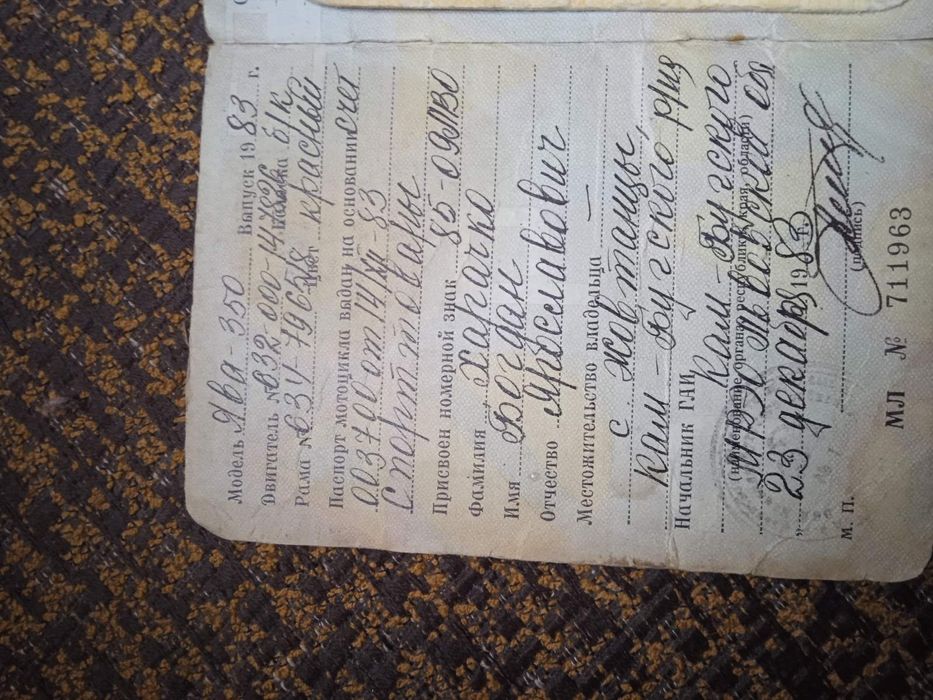 Модель Ява-350 Выпуск 1983 г.
Двигатель № 632-000-147426 Коляска б/к
Рама № 634-79658 Цвет красный
Паспорт мотоцикла выдан на основании счет
003700 от 14/XII-83
Спорттовары
Присвоен номерной знак 85-09 ЛВО
Фамилия Харачко
Имя Богдан
Отчество Ярославович
Местожительство владельца —
с Жовтанцы
Кам-Бугского р/на
Начальник ГАИ Кам-Бугского
(наименование органа, республики, края, области)
УВД
„23 декабря 1983 г.
(подпись)
М. П.
МЛ № 711963